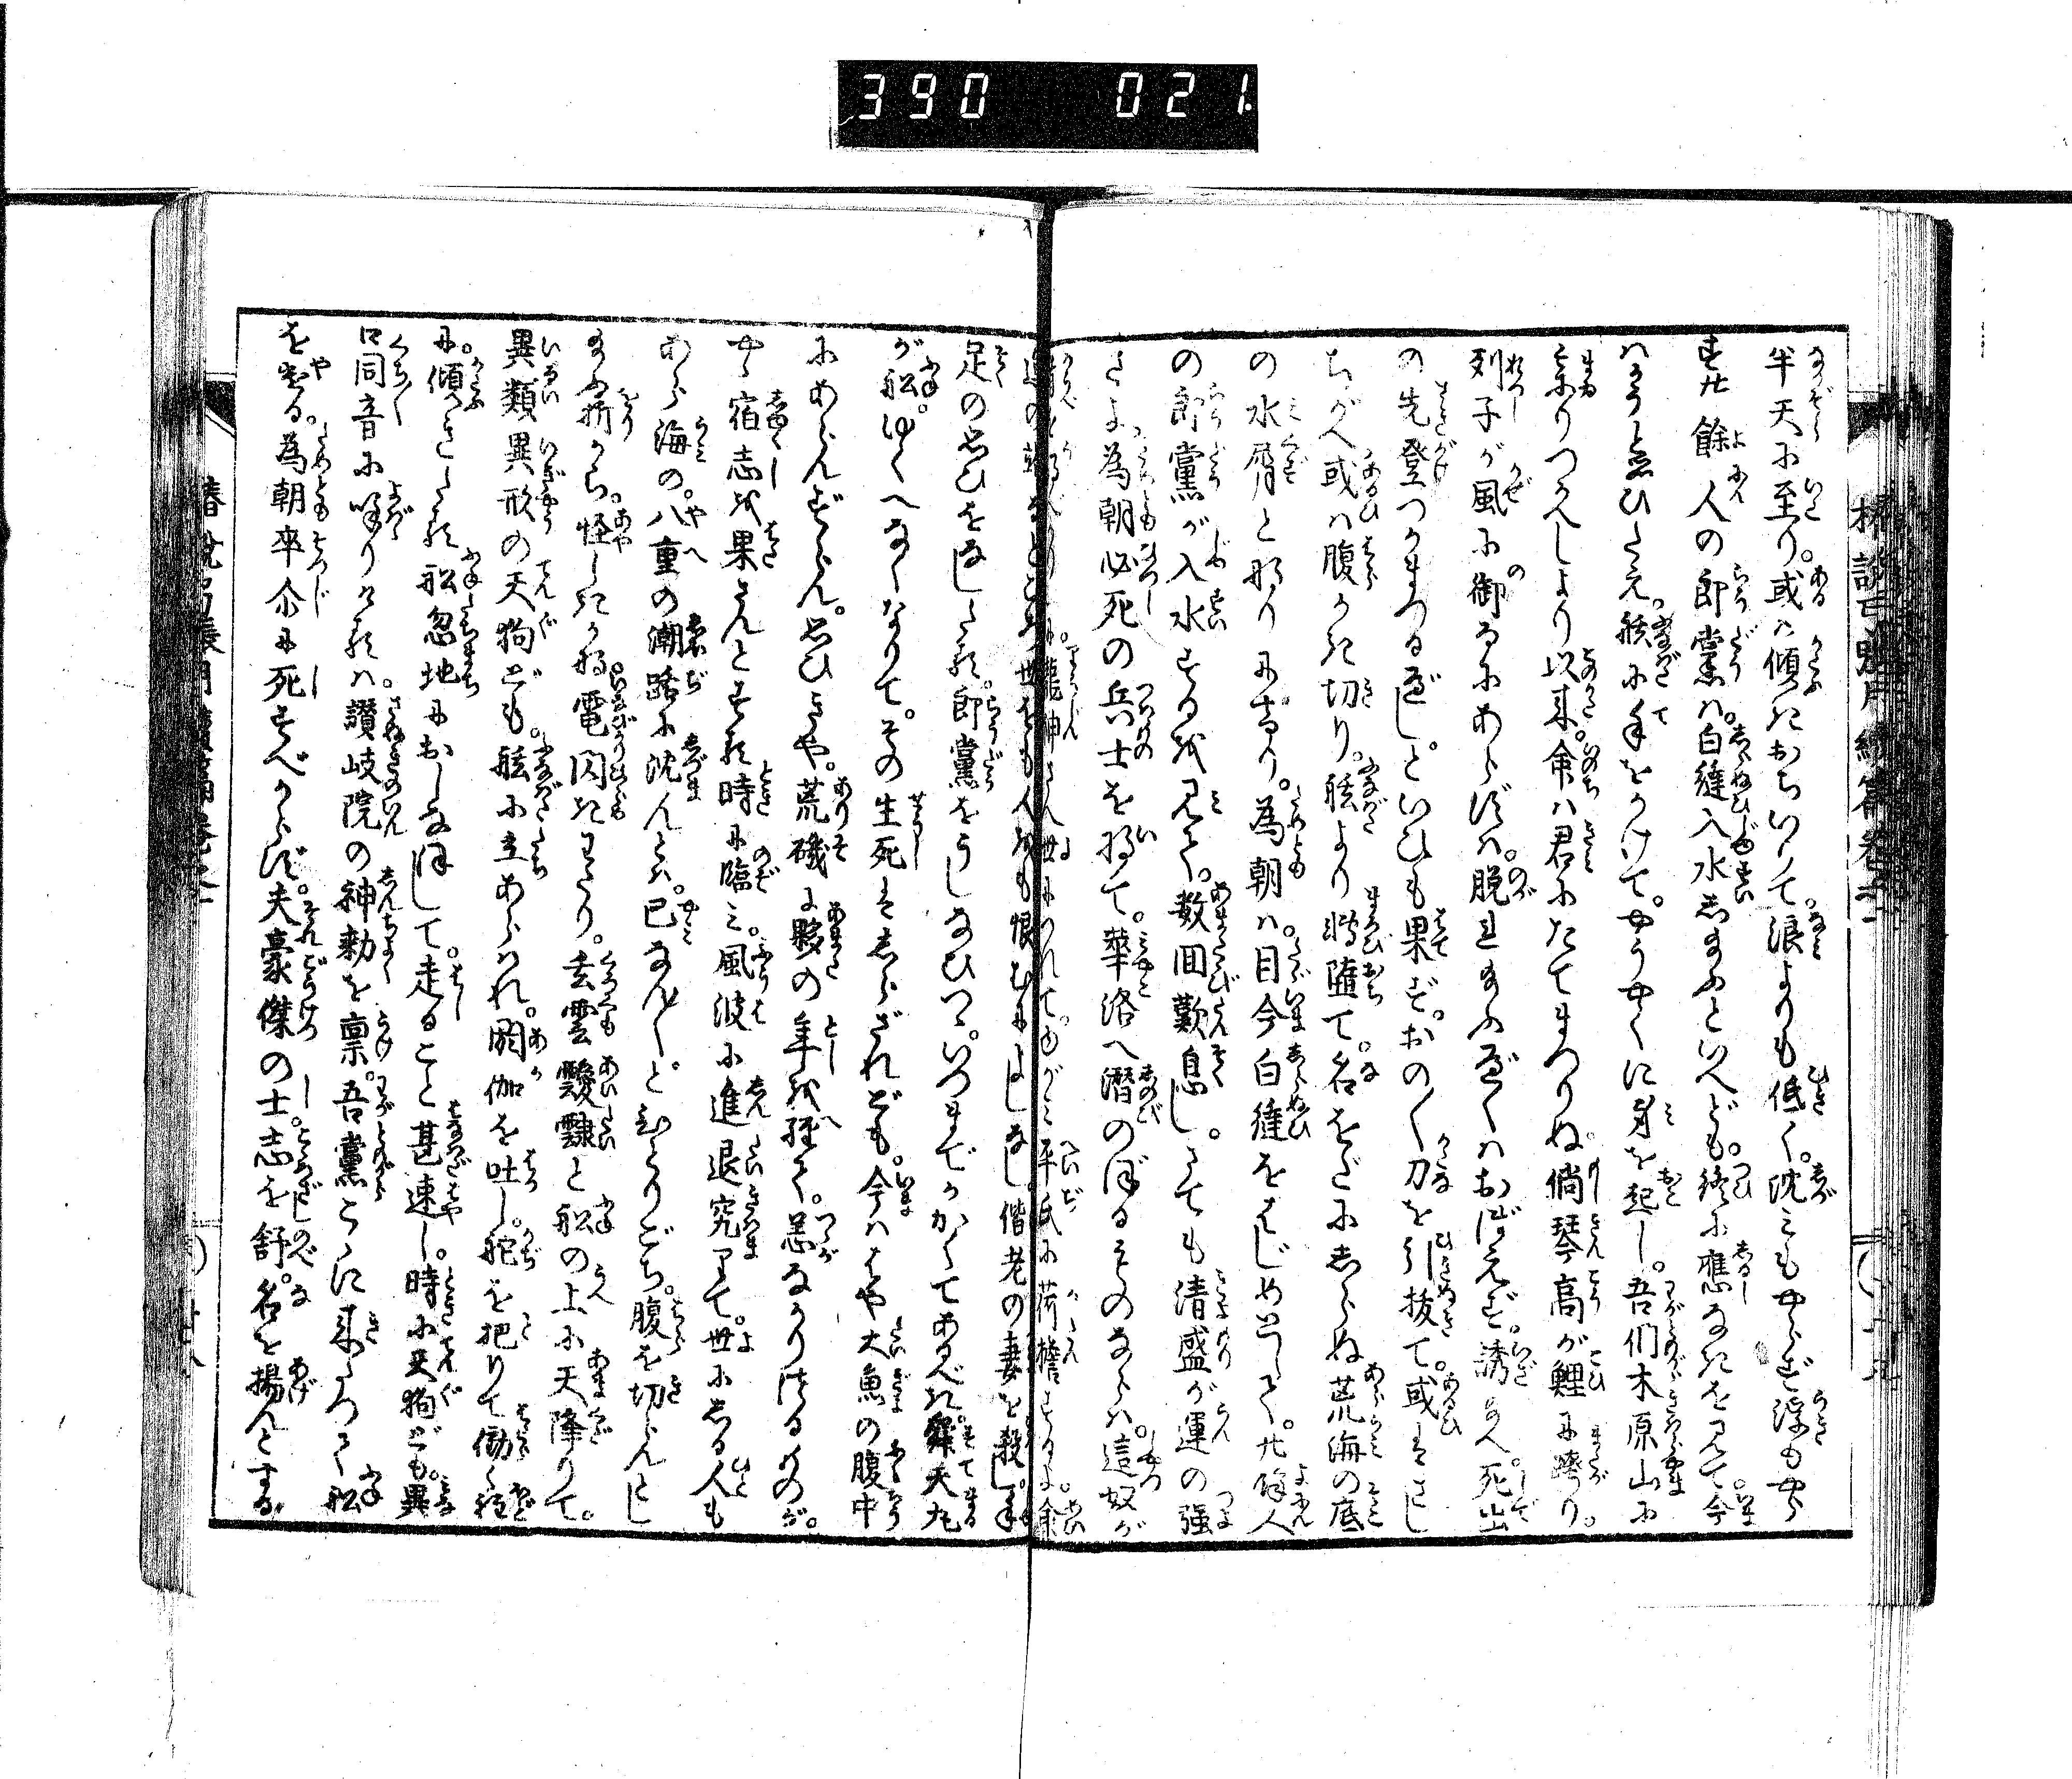 390 021
半天に至り。或は傾きおちいりて。浪よりも低く。沈みもやらず浮もやら
ず廿餘人の郎黨は。白縫入水し給ふといへども。終に應なきを見て。今
はかうと思ひたえ。舷に手をかけて。やうやくに身を起し。吾們木原山に
参りつかへしより以来。命は君にたてまつりぬ。倘琴高が鯉に跨り。
列子が風に御るにあらずは。脱れ給ふべくはおぼえず。誘給へ。死出
の先登つかまつるべし。といひも果ず。おの〳〵刀を引抜て。或はさし
ちがへ或は腹かき切り。舷より轉堕て。名をだにしらぬ荒海の底
の水屑と形りにけり。為朝は。目今白縫をはじめとして。廿餘人
の郎黨が入水するを見て。数回歎息し。さても清盛が運の強
さよ。為朝必死の兵士を将て。華洛へ潜のぼるものならは。這奴が
龍神さへ世につれて。ゆがみ平氏に荷擔するよ。命
世をも人をも恨むによしなし。偕老の妻を殺し。手
足の思ひをなしたる。郎黨をうしなひつ。いつまでかかくてあるべき。舜天丸
が舩。ゆくへなくなりて。その生死はしらざれども。今ははや大魚の腹中
にあらんずらん。思ひきや。荒磯に夥の年を経て。恙なかりけるものが。
やゝ宿志を果さんとする時に臨み。風波に進退究りて。世にしる人も
あら海の。八重の潮路に沈んとは。已なん〳〵とひとりごち。腹を切らんとし
給ふ折から。怪しきかな電閃きわたり。玄雲靉靆と舩の上に天降りて。
異類異形の天狗ども。舷に立あらはれ。閼伽を吐し。舵を把りて働く程
に。傾きたる舩忽地におしなほして。走ること甚速し。時に天狗ども。異
口同音に呼りけるは。讃岐院の神勅を禀。吾黨こゝに来つて舩
を遣る。為朝卒尒に死すべからず。夫豪傑の士。志を舒。名を揚んとする